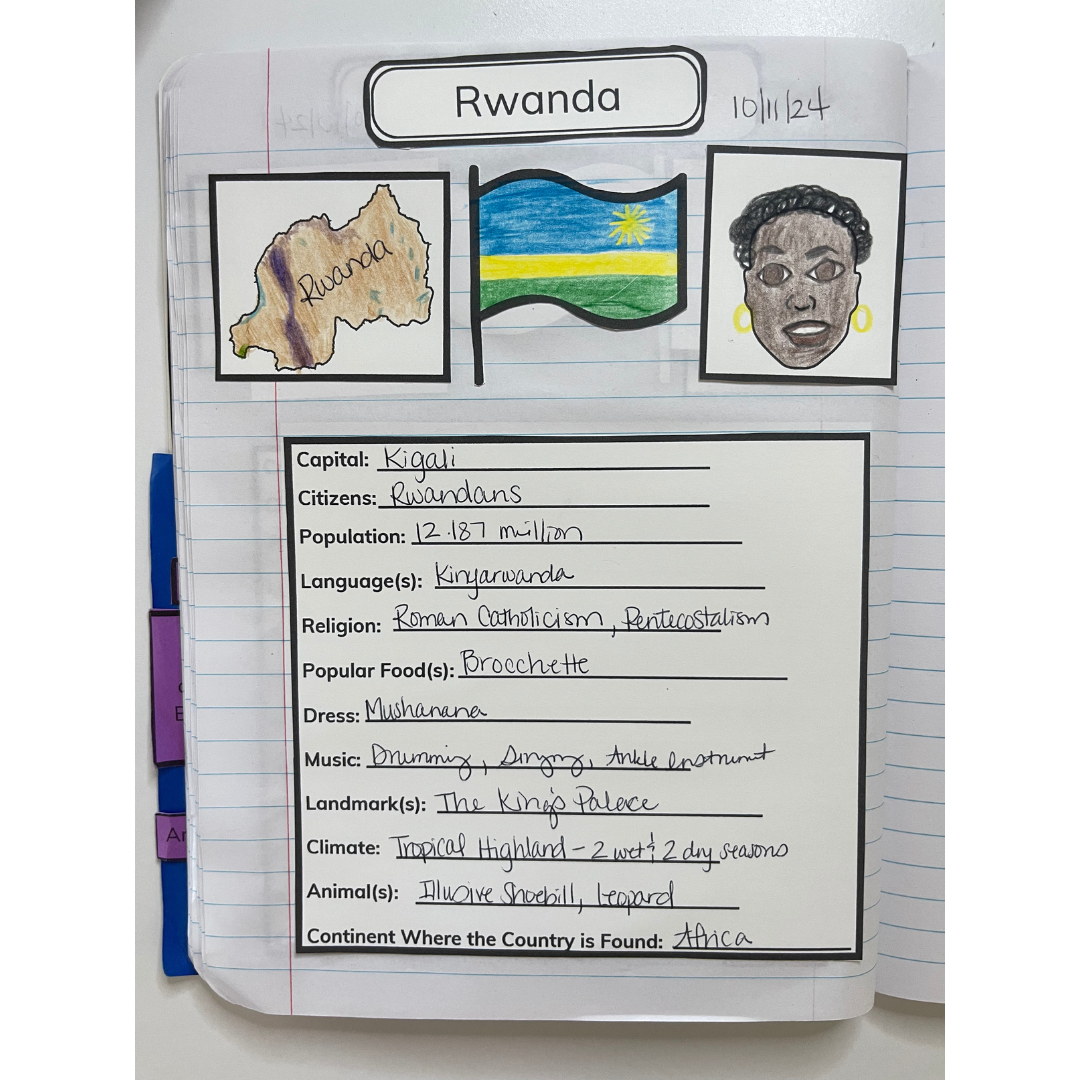 Rwanda
10/11/24
Rwanda
Capital: Kigali
Citizens: Rwandans
Population: 12.187 million
Language(s): Kinyarwanda
Religion: Roman Catholicism, Pentecostalism
Popular Food(s): Brocchette
Dress: Mushanana
Music: Drumming, Singing, Ankle Instrument
Landmark(s): The King's Palace
Climate: Tropical Highland - 2 wet & 2 dry seasons
Animal(s): Illusive Shoebill, Leopard
Continent Where the Country is Found: Africa
E
Ar